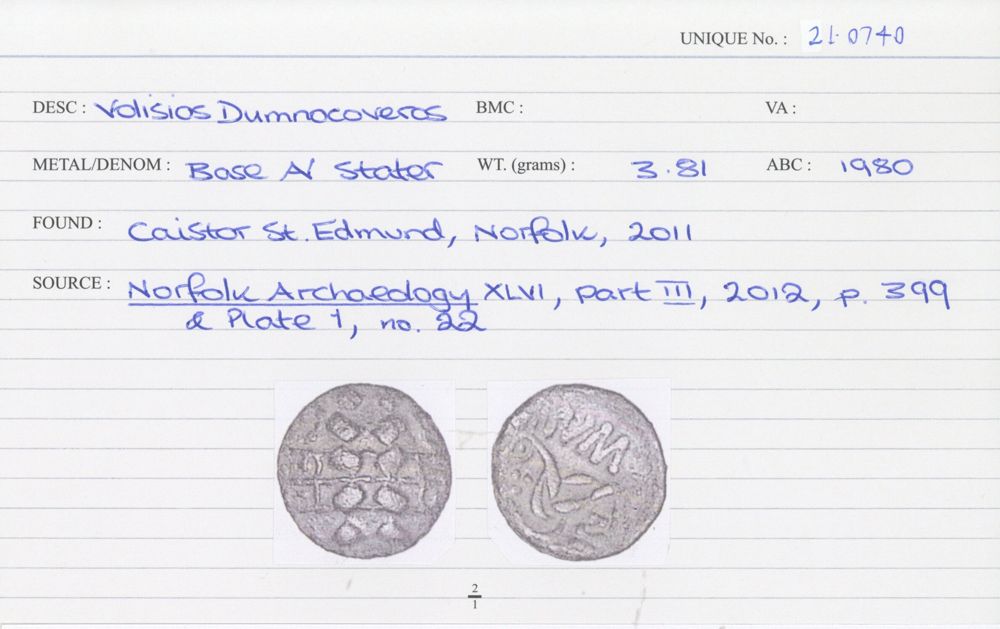 UNIQUE No. : 21·0740
DESC : Volisios Dumnocoveros BMC : VA :
METAL/DENOM : Base AV Stater WT. (grams) : 3.81 ABC : 1980
FOUND : Caistor St. Edmund, Norfolk, 2011
SOURCE : Norfolk Archaeology XLVI, part III, 2012, p. 399
& Plate 1, no. 22
2
1